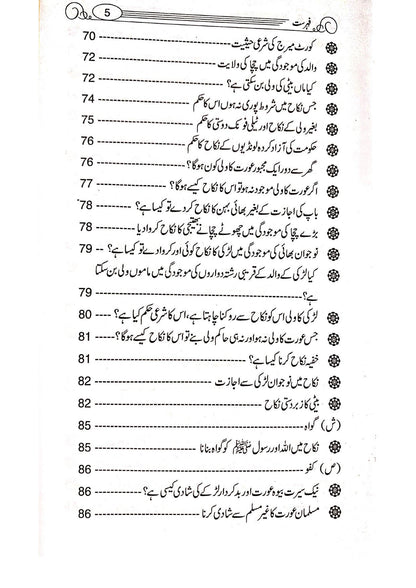 فہرست 5
کورٹ میرج کی شرعی حیثیت ---------- 70
والد کی موجودگی میں چچا کی ولایت ---------- 72
کیا ماں بیٹی کی ولی بن سکتی ہے؟ ---------- 72
جس نکاح میں شروط پوری نہ ہوں اس کا حکم ---------- 74
بغیر ولی کے نکاح اور ٹیلی فونک دوستی کا حکم ---------- 75
حکومت کی آزاد کردہ لونڈیوں کے نکاح کا حکم ---------- 76
گھر سے دور ایک مجبور عورت کا ولی کون ہوگا؟ ---------- 76
اگر عورت کا ولی موجود نہ ہو تو اس کا نکاح کیسے ہوگا؟ ---------- 77
باپ کی اجازت کے بغیر بھائی بہن کا نکاح کر دے تو کیسا ہے؟ ---------- 78
بڑے چچا کی موجودگی میں چھوٹے چچا نے بھتیجی کا نکاح کروا دیا ---------- 78
نوجوان بھائی کی موجودگی میں لڑکی کا نکاح کوئی اور کروا دے تو کیسا ہے؟ -- 79
کیا لڑکی کے والد کے قریبی رشتہ داروں کی موجودگی میں ماموں ولی بن سکتا
ہے؟ ---------- 79
لڑکی کا ولی اس کو نکاح سے روکنا چاہتا ہے، اس کا شرعی حکم کیا ہے؟ ---- 80
جس عورت کا ولی نہ ہو اور نہ ہی حاکم ولی بنے تو اس کا نکاح کیسے ہوگا؟ ----- 81
خفیہ نکاح کرنا کیسا ہے؟ ---------- 81
نکاح میں نوجوان لڑکی سے اجازت ---------- 82
بیٹی کا زبردستی نکاح ---------- 82
(ش) گواہ ---------- 85
نکاح میں اللہ اور رسول ﷺ کو گواہ بنانا ---------- 85
(ص) کفو ---------- 86
نیک سیرت بیوہ عورت اور بدکردار لڑکے کی شادی کیسی ہے؟ ---------- 86
مسلمان عورت کا غیر مسلم سے شادی کرنا ---------- 86